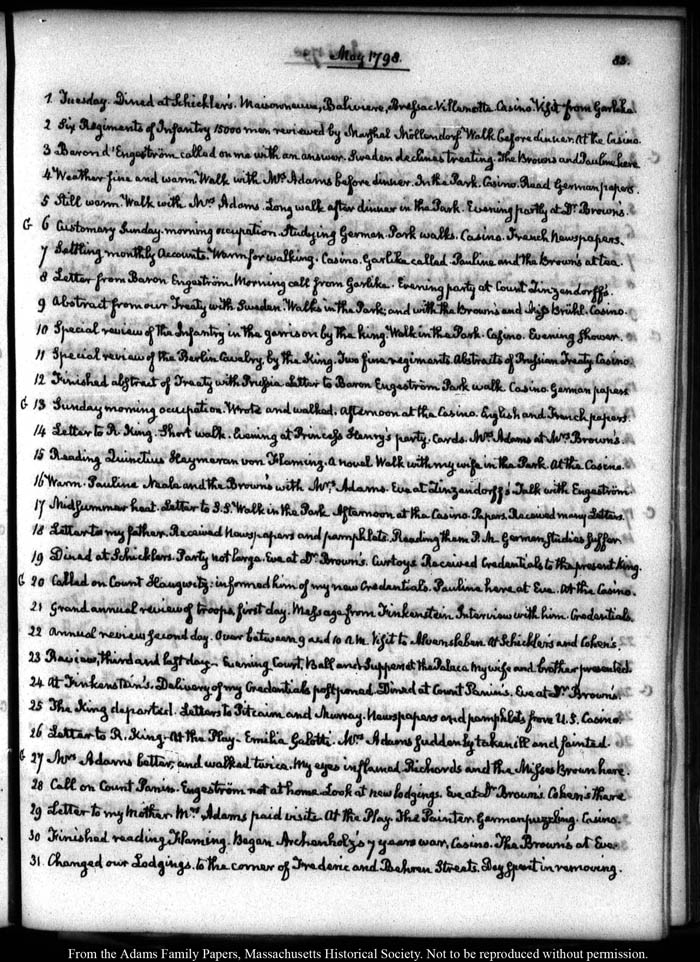 May 1798.
83.
1 Tuesday. Dined at Schickler's. Maisonneuve, Baliviere, Bressac Villanotte Casino. Visit from Garlike.
2 Six Regiments of Infantry 15000 men reviewed by Marshal Möllendorf Walk before dinner. At the Casino.
3 Baron d'Engeström called on me with an answer. Sweden declines treating. The Browns and Pauline here
4 Weather fine and warm Walk with Mrs Adams before dinner. In the Park. Casino. Read German papers.
5 Still warm. Walk with Mrs Adams. Long walk after dinner in the Park. Evening partly at Dr Brown's.
G 6 Customary Sunday morning occupation. Studying German. Park walks. Casino. French Newspapers.
7 Settling monthly Accounts. Warm for walking. Casino. Garlike called. Pauline and the Brown's at tea.
8 Letter from Baron Engeström. Morning call from Garlike. Evening party at Count Zinzendorff's.
9 Abstract from our Treaty with Sweden. Walks in the Park; and with the Brown's and Miss Brühl. Casino.
10 Special review of the Infantry in the garrison by the King. Walk in the Park. Casino. Evening shower.
11 Special review of the Berlin Cavalry, by the King. Two fine regiments. Abstracts of Prussian Treaty Casino.
12 Finished abstract of Treaty with Prussia Letter to Baron Engeström Park walk. Casino. German papers
G 13 Sunday morning occupation. Wrote and walked. Afternoon at the Casino. English and French papers.
14 Letter to R. King. Short walk. Evening at Princess Henry's party. Cards. Mrs Adams at Mrs Brown's.
15 Reading Quinctius Heymeran von Flaming. A novel Walk with my wife in the Park At the Casino.
16 Warm. Pauline Neale and the Brown's with Mrs Adams. Eve at Zinzendorff's Talk with Engeström.
17 Midsummer heat. Letter to J.S. Walk in the Park Afternoon at the Casino. Papers. Received many Letters.
18 Letter to my father. Received Newspapers and pamphlets. Reading them P.M. German Studies suffer.
19 Dined at Schicklers. Party not large. Eve at Dr Brown's. Curtoys Received Credentials to the present King.
G 20 Called on Count Haugwitz: informed him of my new Credentials. Pauline here at Eve. At the Casino.
21 Grand annual review of troops, first day. Message from Finkenstein. Interview with him. Credentials.
22 Annual review second day. Over between 9 and 10 A.M. Visit to Alvensleben. At Schickler's and Cohen's.
23 Review, third and last day. Evening Court, Ball and Supper at the Palace My wife and brother presented.
24 At Finkenstein's. Delivery of my Credentials postponed. Dined at Count Panin's. Eve at Dr Brown's
25 The King departed. Letters to Pitcairn and Murray. Newspapers and pamphlets from U.S. Casino.
26 Letter to R. King. At the Play. Emilia Galotti. Mrs Adams suddenly taken ill and fainted.
G 27 Mrs Adams better, and walked twice. My eyes inflamed Richards and the Misses Brown here.
28 Call on Count Panin. Engeström not at home. Look at new lodgings. Eve at Dr Brown's. Cohen's there
29 Letter to my Mother. Mrs Adams paid visits. At the Play. The Painter. German puzzling. Casino.
30 Finished reading Flaming. Began Archenholz's 7 years war. Casino. The Brown's at Eve.
31. Changed our Lodgings. to the corner of Frederic and Behren Streets. Day spent in removing.
From the Adams Family Papers, Massachusetts Historical Society. Not to be reproduced without permission.